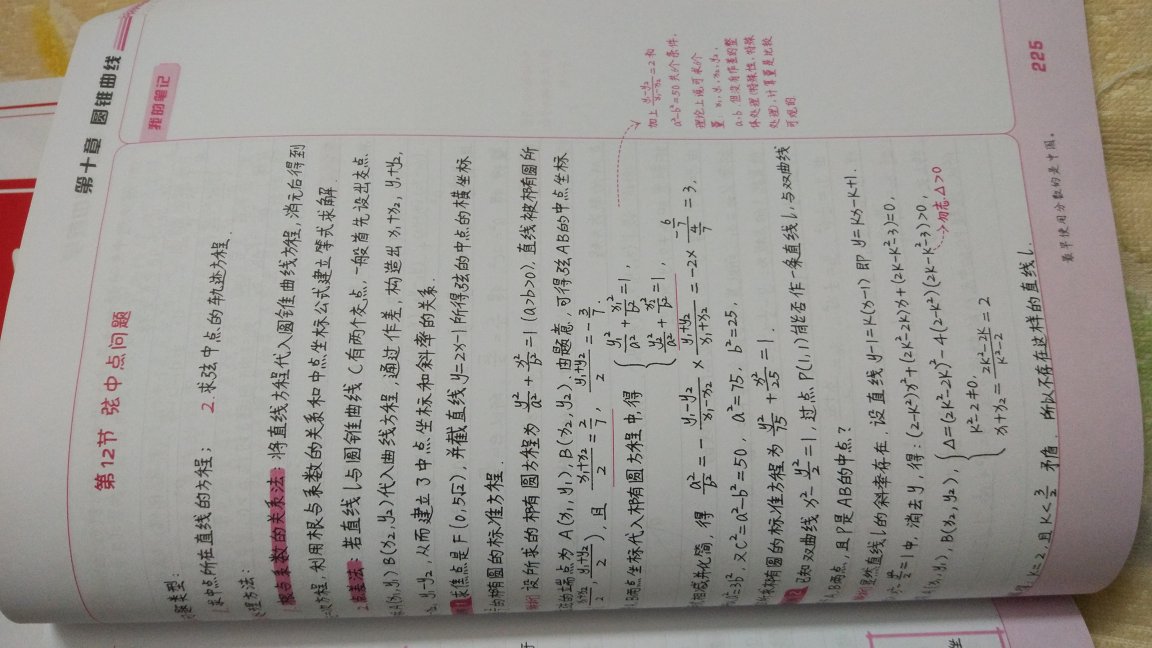 第十章 圆锥曲线
我的笔记
第12节 弦中点问题
类型:
求中点所在直线的方程; 2.求弦中点的轨迹方程.
理方法:
根与系数的关系法: 将直线方程代入圆锥曲线方程,消元后得到
二次方程,利用根与系数的关系和中点坐标公式建立等式求解.
2.点差法: 若直线l与圆锥曲线C有两个交点,一般首先设出交点
标A(x₁,y₁),B(x₂,y₂)代入曲线方程,通过作差,构造出x₁+x₂,y₁+y₂,
-x₂,y₁-y₂,从而建立了中点坐标和斜率的关系.
求焦点是F(0,5√2),并截直线y=2x-1所得弦的中点的横坐标
的椭圆的标准方程.
设所求的椭圆方程为 y²/a²+x²/b²=1(a>b>0),直线被椭圆所
弦的端点为A(x₁,y₁),B(x₂,y₂).由题意,可得弦AB的中点坐标
(x₁+x₂)/2,(y₁+y₂)/2),且(x₁+x₂)/2=2/7,(y₁+y₂)/2=-3/7.
A,B两点坐标代入椭圆方程中,得{y₁²/a²+x₁²/b²=1, y₂²/a²+x₂²/b²=1,
相减并化简,得a²/b²=-(y₁-y₂)/(x₁-x₂)×(y₁+y₂)/(x₁+x₂)=-2×(-6/7)/(4/7)=3,
a²=3b²,又c²=a²-b²=50,a²=75,b²=25,
所求椭圆的标准方程为y²/75+x²/25=1.
已知双曲线x²-y²/2=1,过点P(1,1)能否作一条直线l,与双曲线
A,B两点,且P是AB的中点?
显然直线l的斜率存在,设直线y-1=k(x-1)即y=kx-k+1.
x²-y²/2=1中,消去y,得:(2-k²)x²+(2k²-2k)x+(2k-k²-3)=0,
A(x₁,y₁),B(x₂,y₂),{Δ=(2k²-2k)²-4(2-k²)(2k-k²-3)>0,
k²-2≠0,
x₁+x₂=(2k²-2k)/(k²-2)=2
k=2,且k<3/2 矛盾. 所以不存在这样的直线l.
勿忘Δ>0
加上(y₁-y₂)/(x₁-x₂)=2和
a²-b²=50共6个条件,
理论上说可求6个
量:x₁,y₁,x₂,y₂,
a,b.但没有作差的整
体处理(特殊性,特殊
处理),计算量是比较
可观的.
最早使用分数的是中国。
225